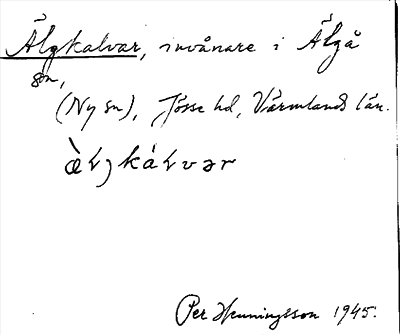 Älgkalvar, invånare i Älgå
sn,
(Ny sn), Jösse hd, Värmlands län.
Per Henningsson 1945.